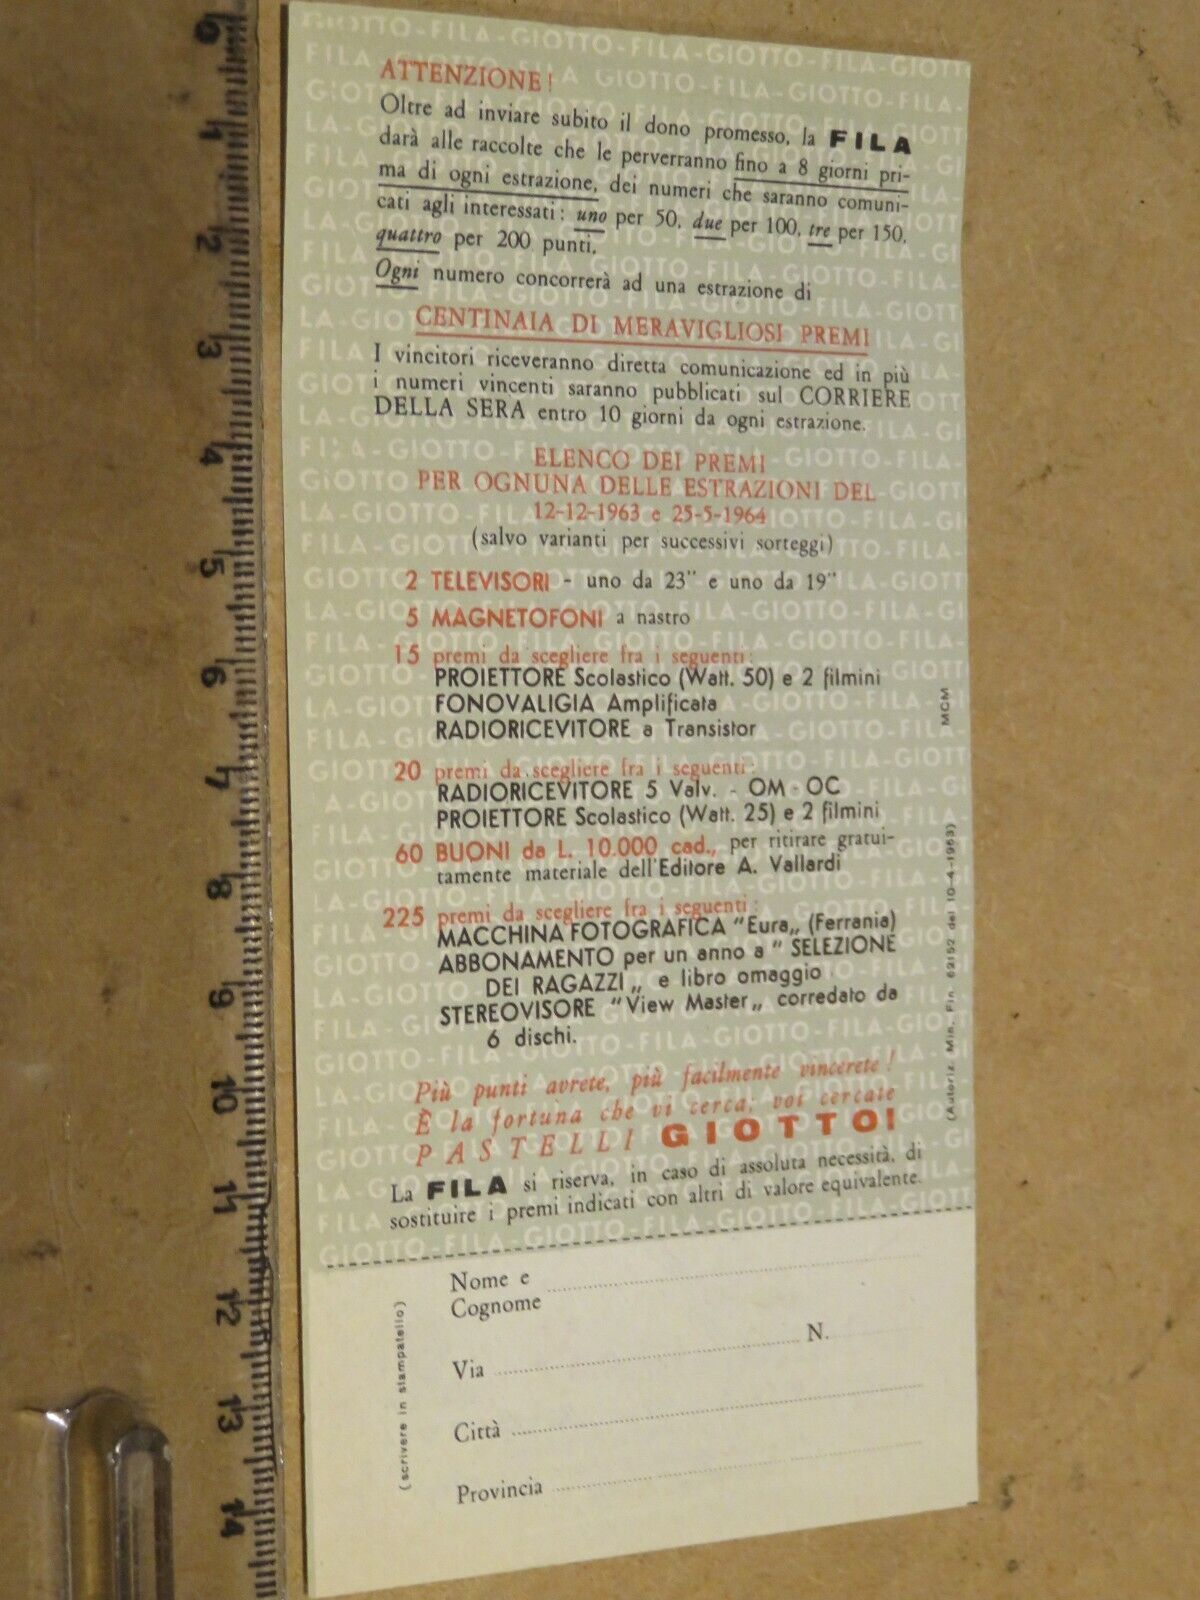 ATTENZIONE!
Oltre ad inviare subito il dono promesso, la FILA
darà alle raccolte che le perverranno fino a 8 giorni pri-
ma di ogni estrazione, dei numeri che saranno comuni-
cati agli interessati: uno per 50, due per 100, tre per 150,
quattro per 200 punti.
Ogni numero concorrerà ad una estrazione di
CENTINAIA DI MERAVIGLIOSI PREMI
I vincitori riceveranno diretta comunicazione ed in più
i numeri vincenti saranno pubblicati sul CORRIERE
DELLA SERA entro 10 giorni da ogni estrazione.
ELENCO DEI PREMI
PER OGNUNA DELLE ESTRAZIONI DEL
12-12-1963 e 25-5-1964
(salvo varianti per successivi sorteggi)
2 TELEVISORI - uno da 23" e uno da 19"
5 MAGNETOFONI a nastro
15 premi da scegliere fra i seguenti:
PROIETTORE Scolastico (Watt. 50) e 2 filmini
FONOVALIGIA Amplificata
RADIORICEVITORE a Transistor
20 premi da scegliere fra i seguenti:
RADIORICEVITORE 5 Valv. - OM - OC
PROIETTORE Scolastico (Watt. 25) e 2 filmini
60 BUONI da L. 10.000 cad., per ritirare gratui-
tamente materiale dell'Editore A. Vallardi
225 premi da scegliere fra i seguenti:
MACCHINA FOTOGRAFICA "Eura„ (Ferrania)
ABBONAMENTO per un anno a " SELEZIONE
DEI RAGAZZI „ e libro omaggio
STEREOVISORE "View Master„ corredato da
6 dischi.
Più punti avrete, più facilmente vincerete!
È la fortuna che vi cerca; voi cercate
PASTELLI GIOTTO!
La FILA si riserva, in caso di assoluta necessità, di
sostituire i premi indicati con altri di valore equivalente.
MCM
(Autoriz. Min. Fin. 62152 del 10-4-1963)
Nome e
Cognome
Via N.
Città
Provincia
(scrivere in stampatello)
0 1 2 3 4 5 6 7 8 9 10 11 12 13 14